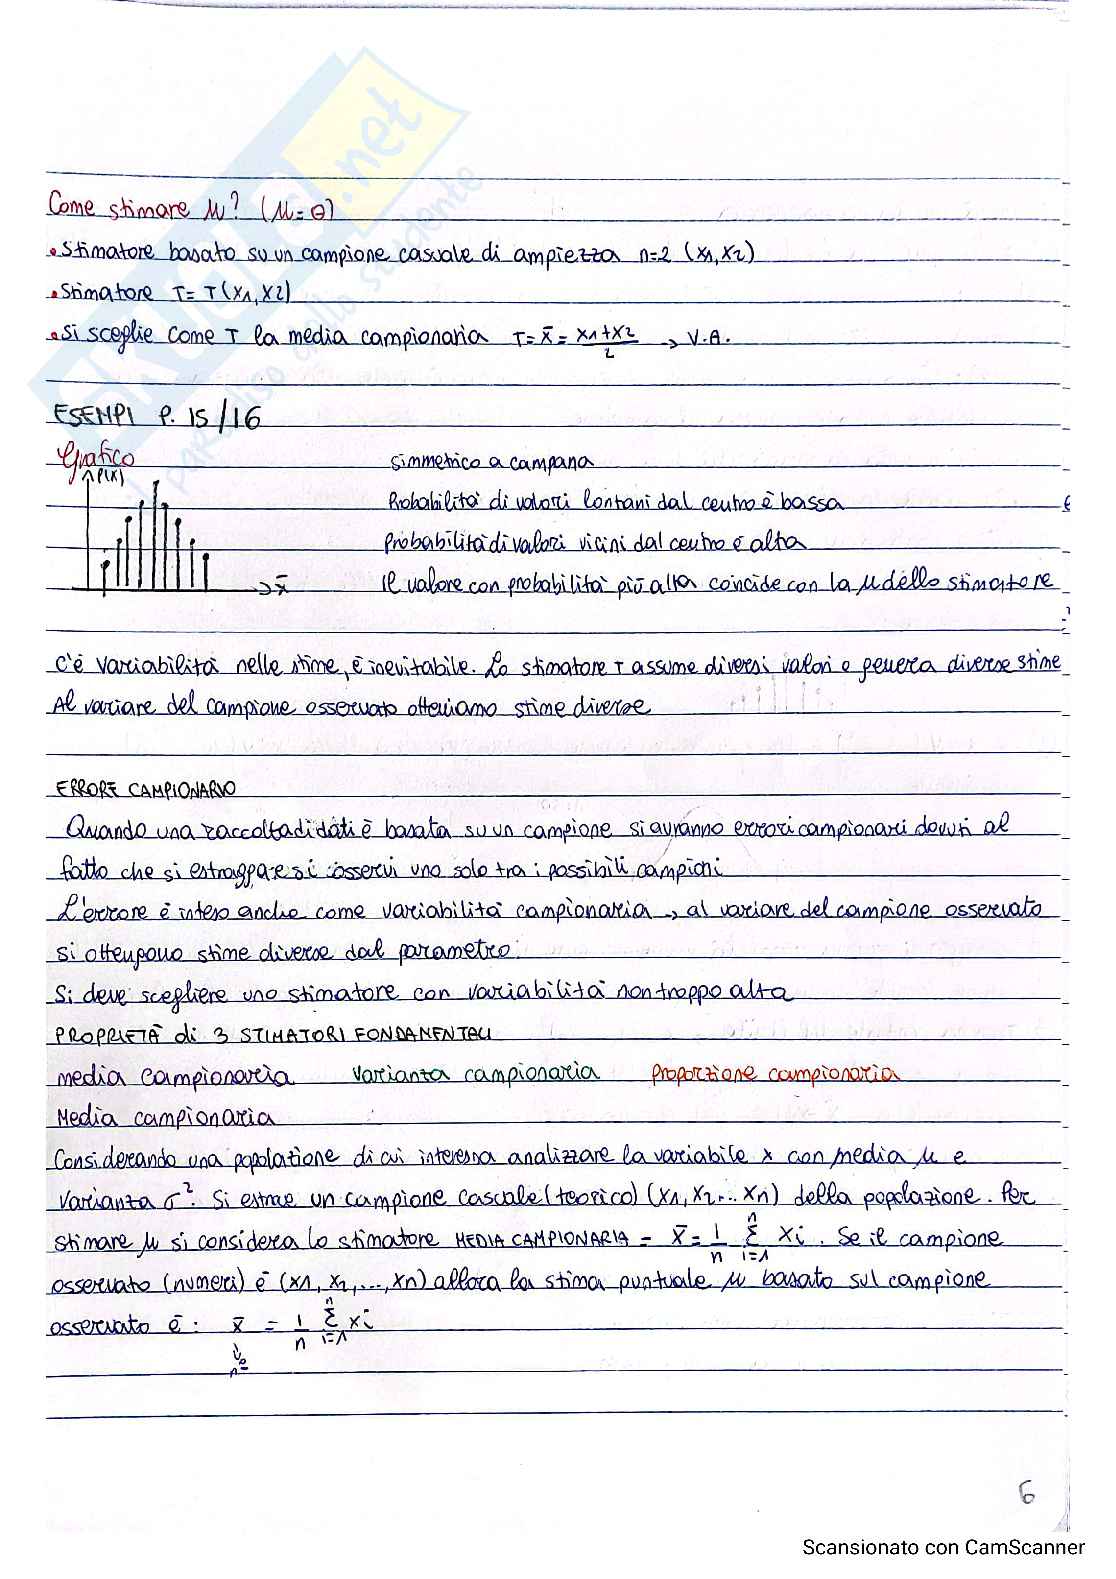 Come stimare μ? (μ=θ)
• Stimatore basato su un campione casuale di ampiezza n=2 (x1,x2)
• Stimatore T= T(x1,x2)
• Si sceglie come T la media campionaria T= x̄ = x1+x2/2 → V.A.
ESEMPI P. 15/16
Grafico
P(X)
x̄
simmetrico a campana
Probabilità di valori lontani dal centro è bassa
Probabilità di valori vicini dal centro è alta
Il valore con probabilità più alta coincide con la μ dello stimatore
C'è variabilità nelle stime, è inevitabile. Lo stimatore T assume diversi valori e genera diverse stime
Al variare del campione osservato otteniamo stime diverse
ERRORE CAMPIONARIO
Quando una raccolta di dati è basata su un campione si avranno errori campionari dovuti al
fatto che si estragga e si osservi uno solo tra i possibili campioni
L'errore è inteso anche come variabilità campionaria → al variare del campione osservato
si ottengono stime diverse dal parametro.
Si deve scegliere uno stimatore con variabilità non troppo alta
PROPRIETÀ di 3 STIMATORI FONDAMENTALI
media campionaria varianza campionaria proporzione campionaria
Media campionaria
Considerando una popolazione di cui interessa analizzare la variabile x con media μ e
varianza σ². Si estrae un campione casuale (teorico) (x1, x2,... xn) della popolazione. Per
stimare μ si considera lo stimatore MEDIA CAMPIONARIA = x̄ = 1/n Σ i=1 n xi. Se il campione
osservato (numeri) è (x1, x2, ..., xn) allora la stima puntuale μ basato sul campione
osservato è: x̄ = 1/n Σ i=1 n xi
↓
n°
6
Scansionato con CamScanner
skuola.net
il paradiso dello studente